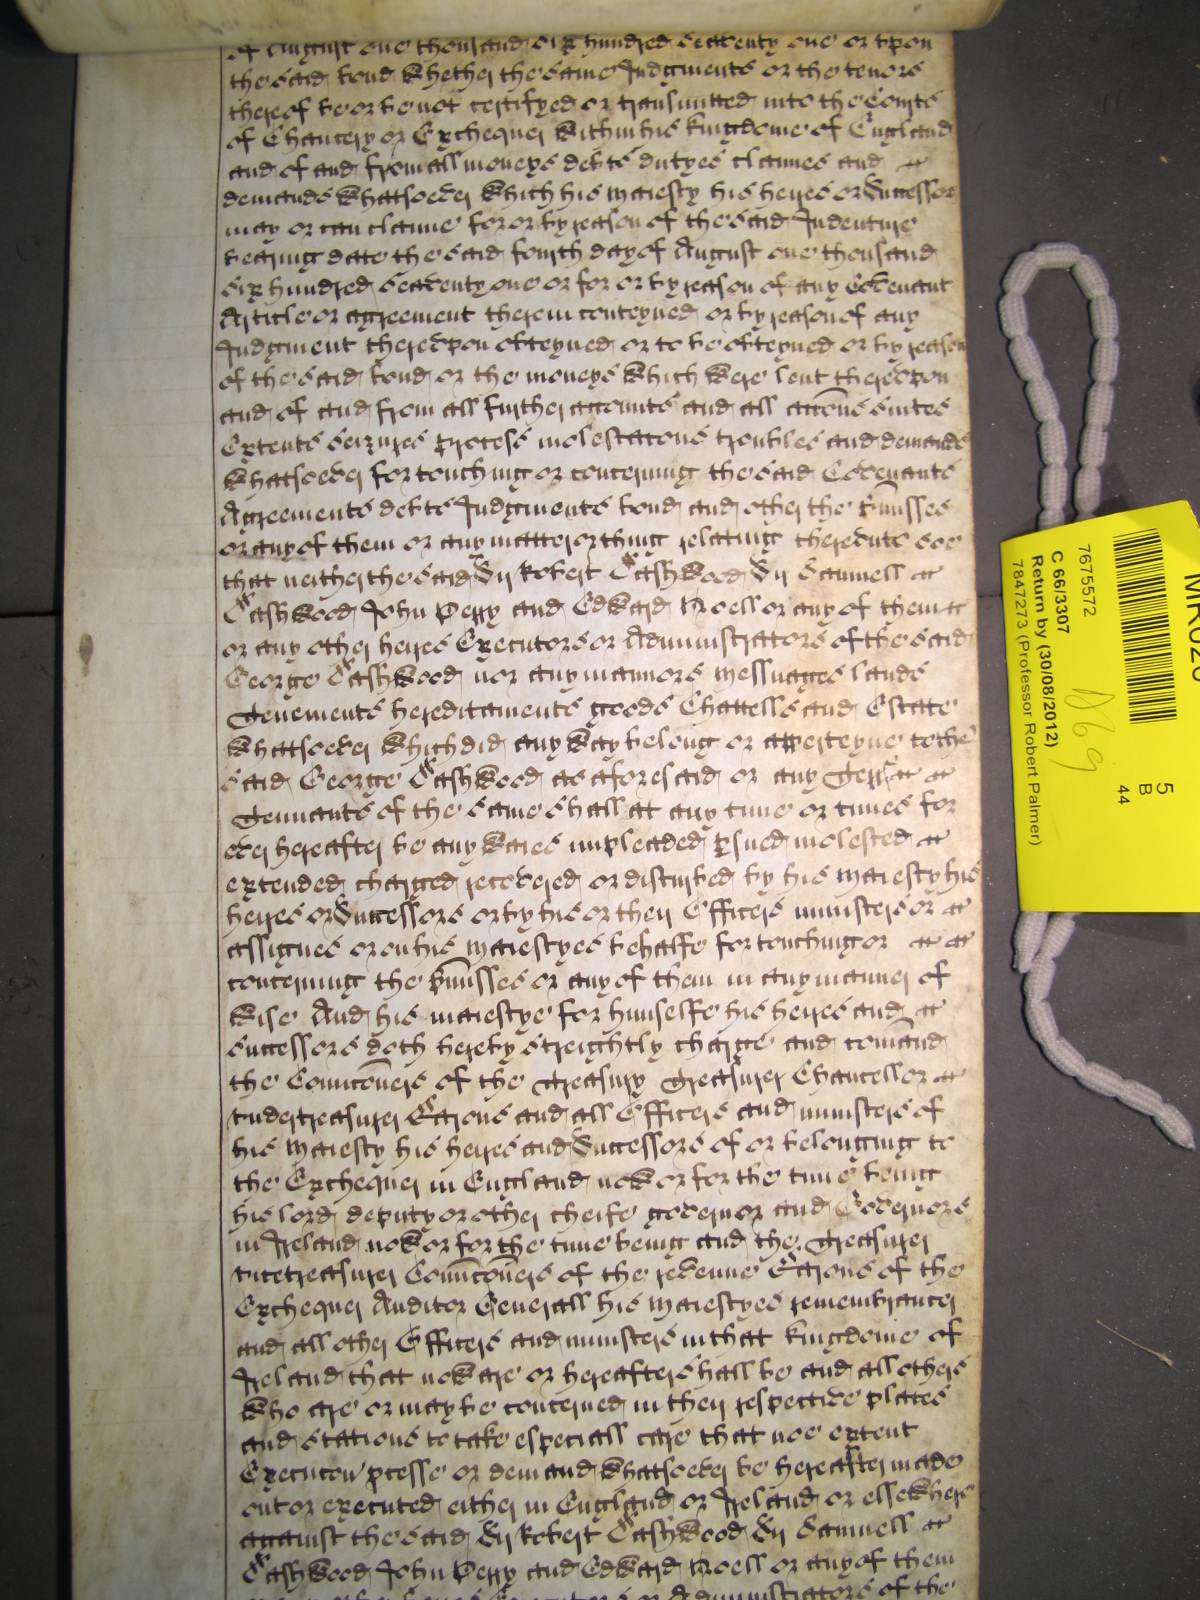 of August one thousand six hundred seaventy one or upon
the said bond whether the same Judgments or the tenors
thereof be or be not certifyed or transmitted into the Courts
of Chancery or Exchequer within his Kingdome of England
and of and from all moneys debts dutyes claimes and
demands whatsoever which his Maiesty his heires or Successors
may or can claime for or by reason of the said Indenture
bearing date the said fourth day of August one thousand
six hundred seaventy one or for or by reason of any Covenant
Article or agreement therein conteyned or by reason of any
Judgment thereupon obteyned or to be obteyned or by reason
of the said bond or the moneys which were lent thereupon
and of and from all further accounts and all accons suites
Extents seizures process molestacons troubles and demands
whatsoever for touching or concerning the said Covenants
Agreements debts Judgments bond and other the p͠misses
or any of them or any matter or thing relating thereunto soe
that neither the said Sir Robert Sir Samuell
John Perry and Edward Roell or any of them
or any other heires Executors or Administrators of the said
George nor any mannors messuages lands
Tenements hereditaments goods Chattells and Estate
whatsoever which did any way belong or apperteyne to the
said George as aforesaid or any Terr
Tennants of the same shall at any time or times for
ever hereafter be any waies impleaded psued molested
extended charged recovered or disturbed by his Maiesty his
heires or Successors or by his or their Officers ministers or
assignes or on his Maiestyes behalfe for touching or
concerning the p͠misses or any of them in any manner of
wise And his Maiestye for himselfe his heires and
successors doth hereby streightly charge and com͠and
the Comicõners of the Treasury Treasurer Chancellor
undertreasurer Barons and all Officers and ministers of
his Maiesty his heires and Successors of or belonging to
the Exchequer in England now or for the time being
his lord deputy or other cheife governor and Governors
in Ireland now or for the time being and the Treasurer
vicetreasurer Com͠icõners of the revenue Barons of the
Exchequer Auditor Generall his Maiestyes remembrancer
and all other Officers and ministers in that Kingdome of
Ireland that now are or hereafter shall be and all others
who are or may be concerned in their respective places
and stations to take especiall care that noe extent
Execucon pcesse or demand whatsoever be hereafter made
out or executed either in England or Ireland or elsewhere
against the said Sir Robert Sir Samuell
John Perry and Edward Roell or any of them
Executors or Administrators of the
7675572
C 66/3307
Return by (30/08/2012)
7847273 (Professor Robert Palmer)
D69
5
B
44